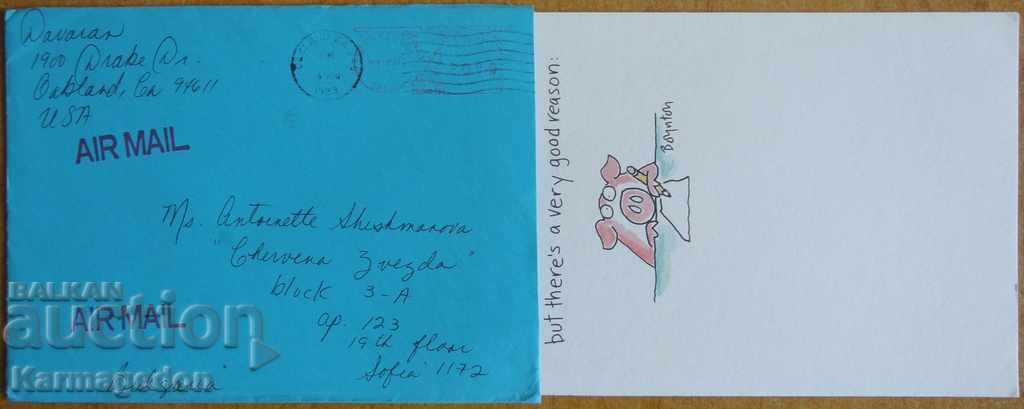 Davoran
1900 Drake Dr.
Oakland, Ca 94611
USA
AIR MAIL
Ms. Antoinette Shishmanova
"Chervena Zvezda"
block 3-A
ap. 123
19th floor
Sofia 1172
AIR MAIL
Bulgaria
BALKAN
auction
Karmagedon
but there's a very good reason:
Boynton